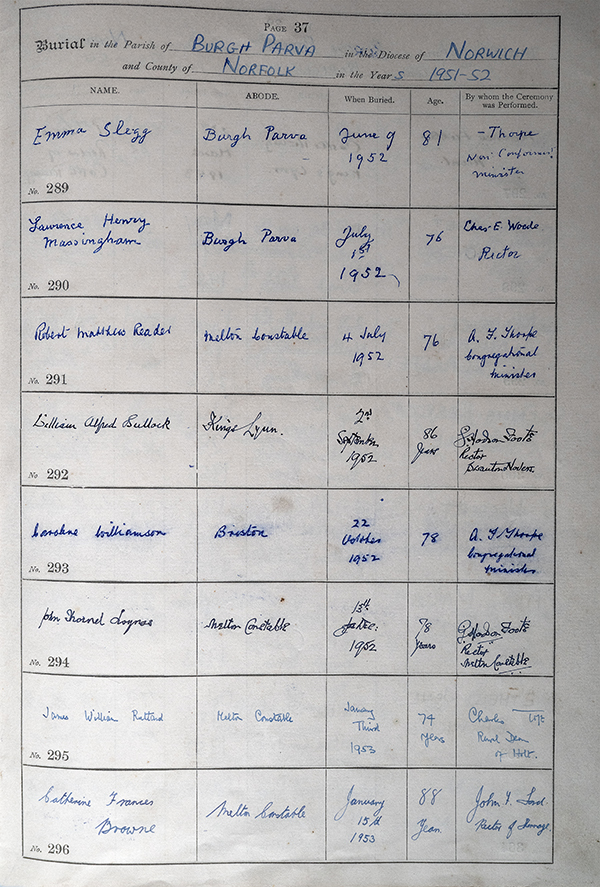 PAGE 37
Burial in the Parish of BURGH PARVA in the Diocese of NORWICH
and County of NORFOLK in the Years 1951-52
NAME. ABODE. When Buried. Age. By whom the Ceremony was Performed.
Emma Slegg Burgh Parva June 9 81 - Thorpe
1952 Non Conformist
minister
No. 289
Lawrence Henry Burgh Parva July 76 Chas. E. Woode
Massingham 1st Rector
1952
No. 290
Robert Matthew Reader Melton Constable 4 July 76 A. F. Thorpe
1952 Congregational
minister
No. 291
William Alfred Bullock Kings Lynn. 2nd 86 G. Hodson Foots
September Years Rector
1952
No. 292
Caroline Williamson Briston 22 78 A. F. Thorpe
October Congregational
1952 minister
No. 293
John Melton Constable 13th 78 G. Hodson Foots
Years Rector
1952 Melton Constable
No. 294
James William Melton Constable January 74 Charles
Third Years Rural Dean
1953 of Holt.
No. 295
Catherine Frances Melton Constable January 88 John F.
Browne 15th Years Rector of
1953
No. 296